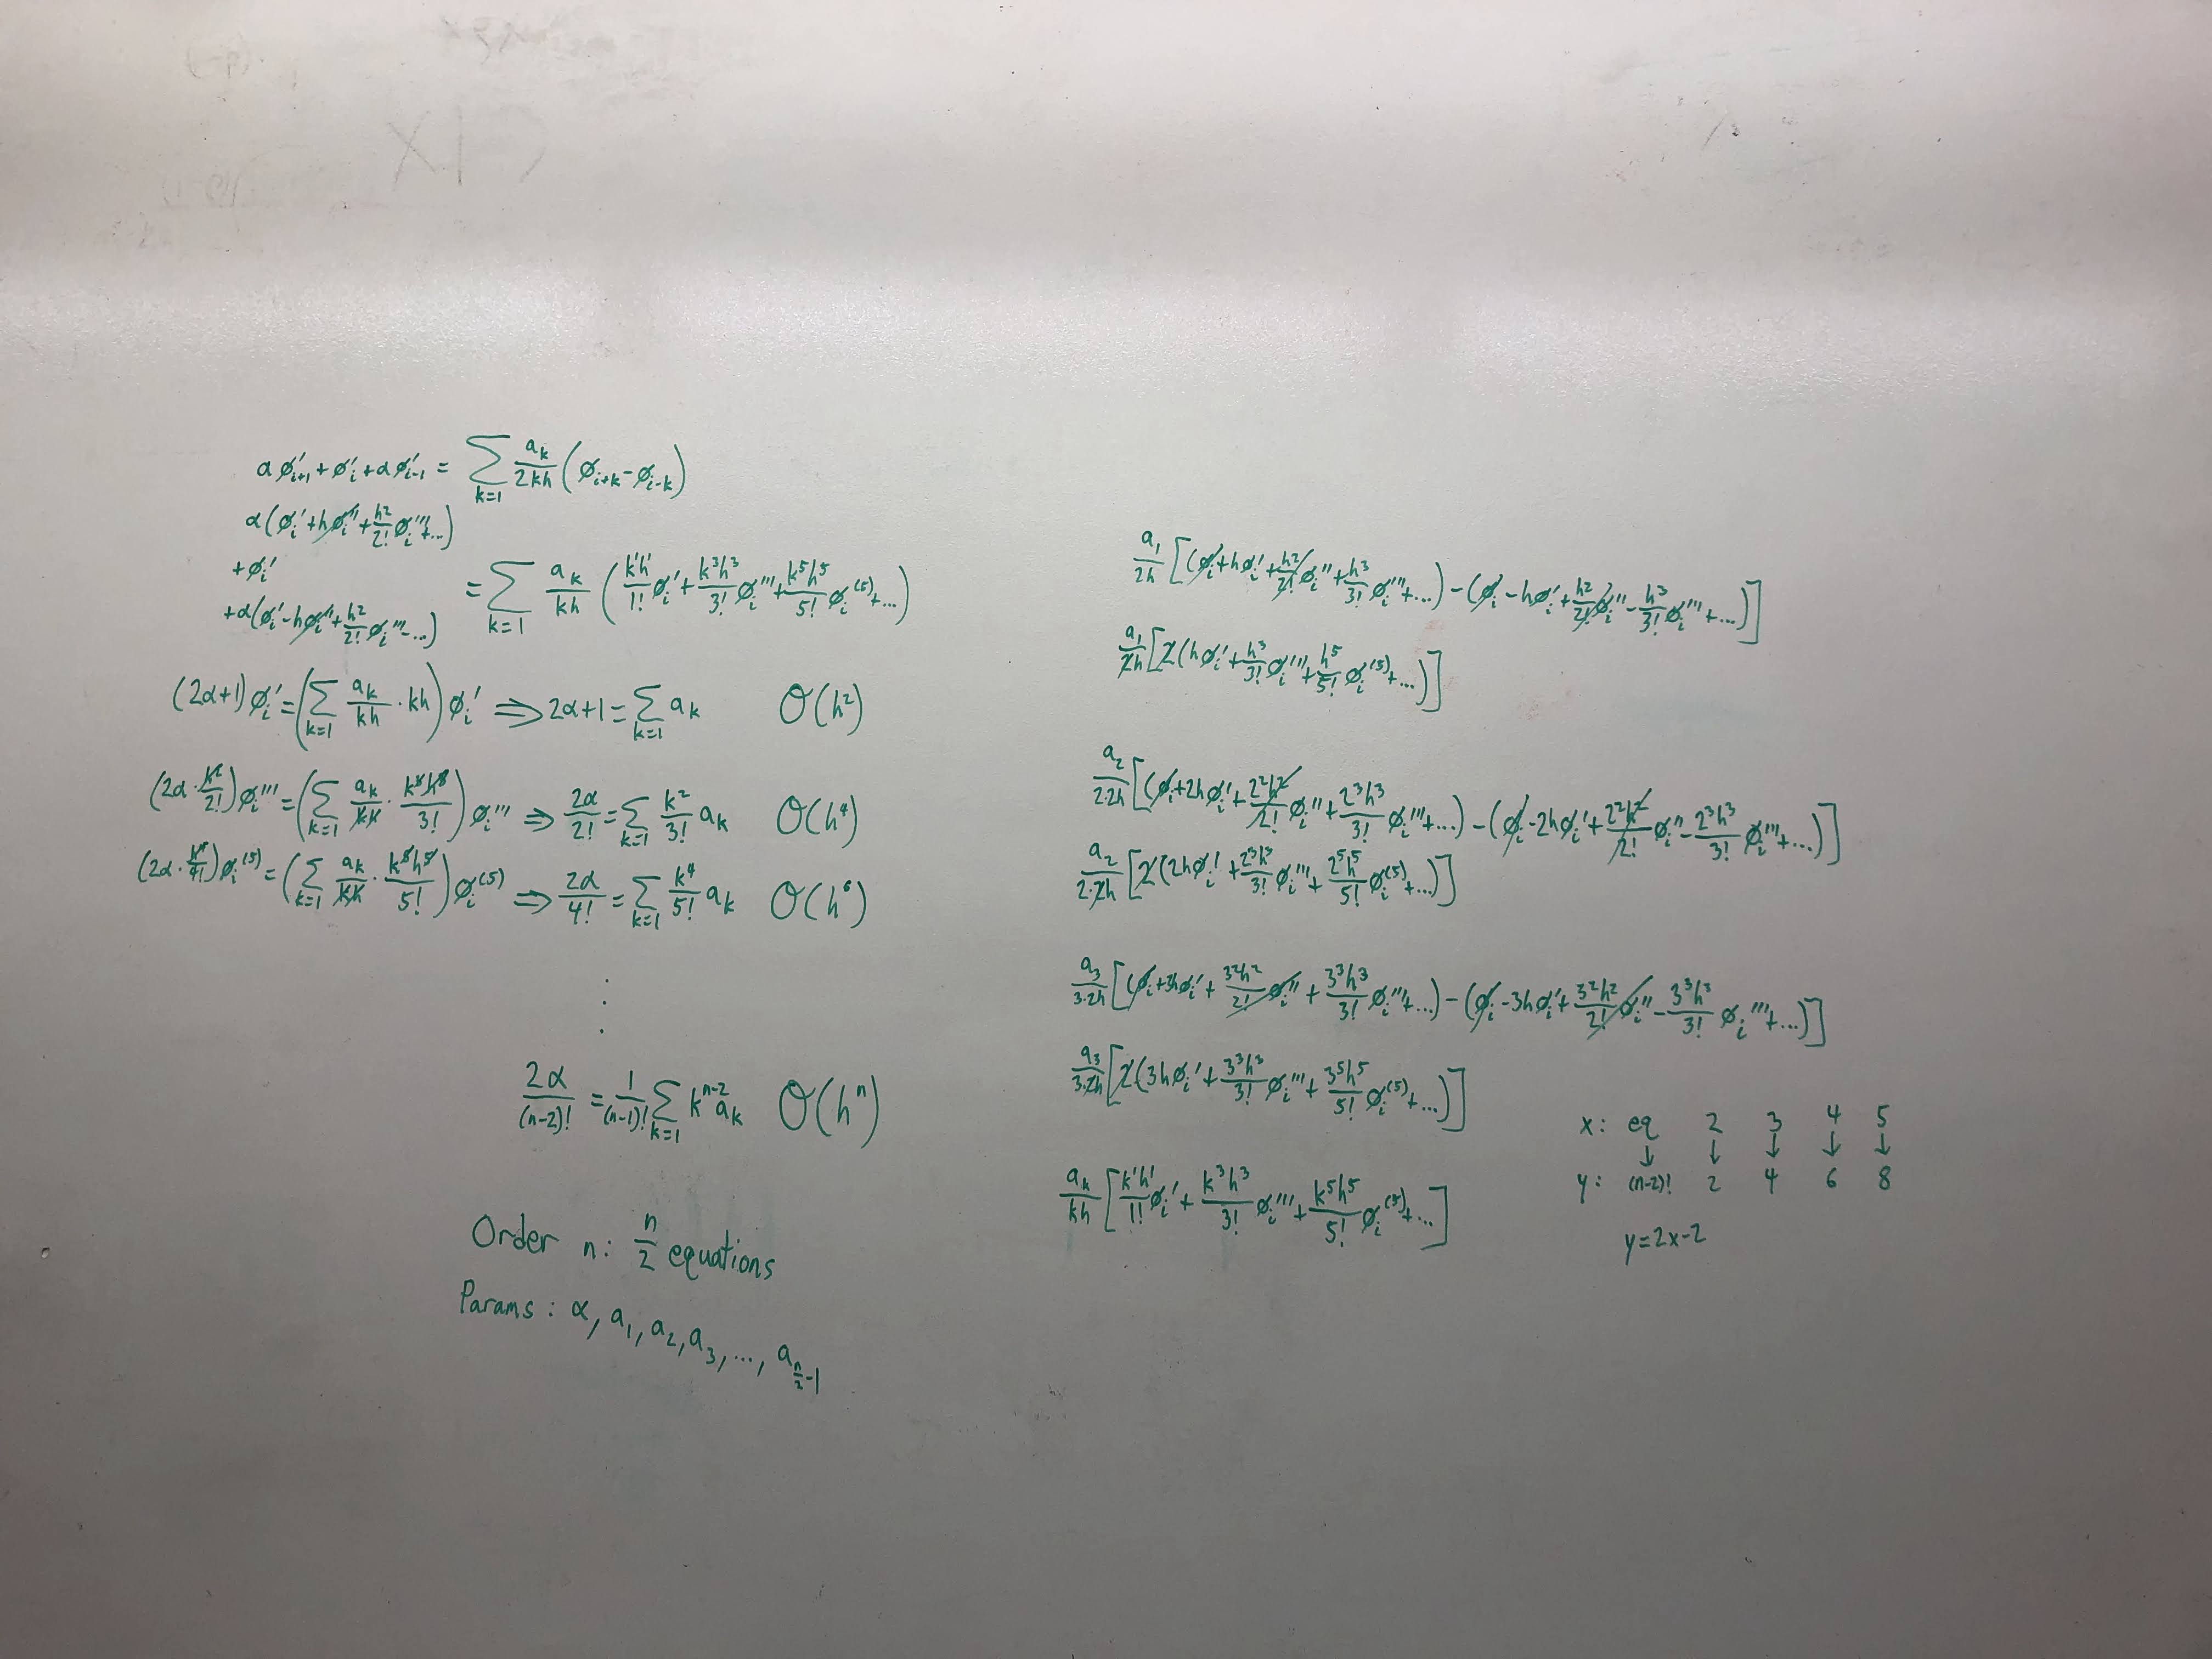 αφ'ᵢ₊₁ + φ'ᵢ + αφ'ᵢ₋₁ = ∑_{k=1} a_k/(2kh) (φᵢ₊ₖ - φᵢ₋ₖ)
α(φᵢ' + hφᵢ'' + h²/2! φᵢ''' + ...)
+ φᵢ'
+ α(φᵢ' - hφᵢ'' + h²/2! φᵢ''' - ...)
= ∑_{k=1} a_k/(kh) (k¹h¹/1! φᵢ' + k³h³/3! φᵢ''' + k⁵h⁵/5! φᵢ⁽⁵⁾ + ...)
(2α+1)φᵢ' = (∑_{k=1} a_k/(kh) · kh) φᵢ' ⟹ 2α+1 = ∑_{k=1} a_k O(h²)
(2α · h²/2!)φᵢ''' = (∑_{k=1} a_k/(kh) · k³h³/3!) φᵢ''' ⟹ 2α/2! = ∑_{k=1} k²/3! a_k O(h⁴)
(2α · h⁴/4!)φᵢ⁽⁵⁾ = (∑_{k=1} a_k/(kh) · k⁵h⁵/5!) φᵢ⁽⁵⁾ ⟹ 2α/4! = ∑_{k=1} k⁴/5! a_k O(h⁶)
⋮
2α/(n-2)! = 1/(n-1)! ∑_{k=1} kⁿ⁻² a_k O(hⁿ)
Order n: n/2 equations
Params: α, a₁, a₂, a₃, ..., a_{n/2-1}
a₁/2h [(φᵢ + hφᵢ' + h²/2! φᵢ'' + h³/3! φᵢ''' + ...) - (φᵢ - hφᵢ' + h²/2! φᵢ'' - h³/3! φᵢ''' + ...)]
a₁/2h [2(hφᵢ' + h³/3! φᵢ''' + h⁵/5! φᵢ⁽⁵⁾ + ...)]
a₂/2·2h [(φᵢ + 2hφᵢ' + 2²h²/2! φᵢ'' + 2³h³/3! φᵢ''' + ...) - (φᵢ - 2hφᵢ' + 2²h²/2! φᵢ'' - 2³h³/3! φᵢ''' + ...)]
a₂/2·2h [2(2hφᵢ' + 2³h³/3! φᵢ''' + 2⁵h⁵/5! φᵢ⁽⁵⁾ + ...)]
a₃/3·2h [(φᵢ + 3hφᵢ' + 3²h²/2! φᵢ'' + 3³h³/3! φᵢ''' + ...) - (φᵢ - 3hφᵢ' + 3²h²/2! φᵢ'' - 3³h³/3! φᵢ''' + ...)]
a₃/3·2h [2(3hφᵢ' + 3³h³/3! φᵢ''' + 3⁵h⁵/5! φᵢ⁽⁵⁾ + ...)]
a_k/kh [k¹h¹/1! φᵢ' + k³h³/3! φᵢ''' + k⁵h⁵/5! φᵢ⁽⁵⁾ + ...]
x: eq 2 3 4 5
↓ ↓ ↓ ↓ ↓
y: (n-2)! 2 4 6 8
y=2x-2